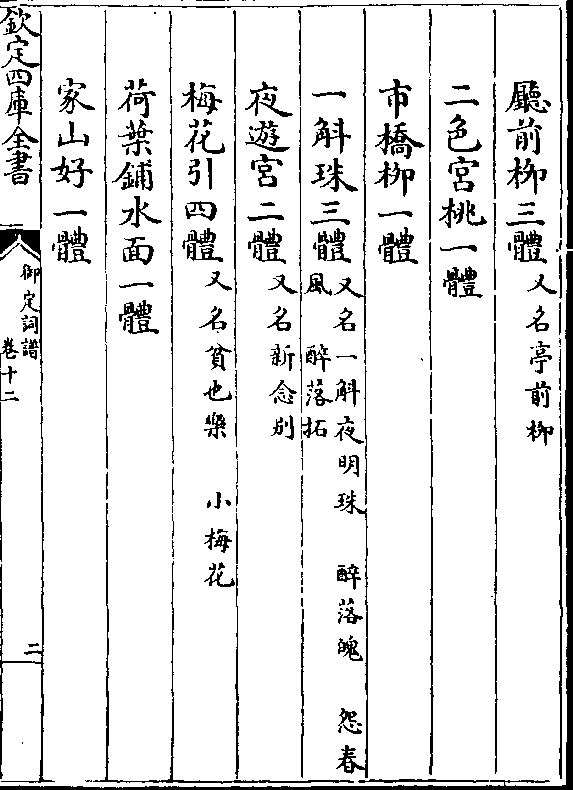 廳前柳三體 又名亭前柳
二色宮桃一體
市橋柳一體
一斛珠三體 又名一斛夜明珠 醉落魄 怨春
風 醉落拓
夜遊宮二體 又名新念别
梅花引四體 又名貧也樂 小梅花
荷葉鋪水面一體
家山好一體
欽定四庫全書 御定詞譜 卷十二 二